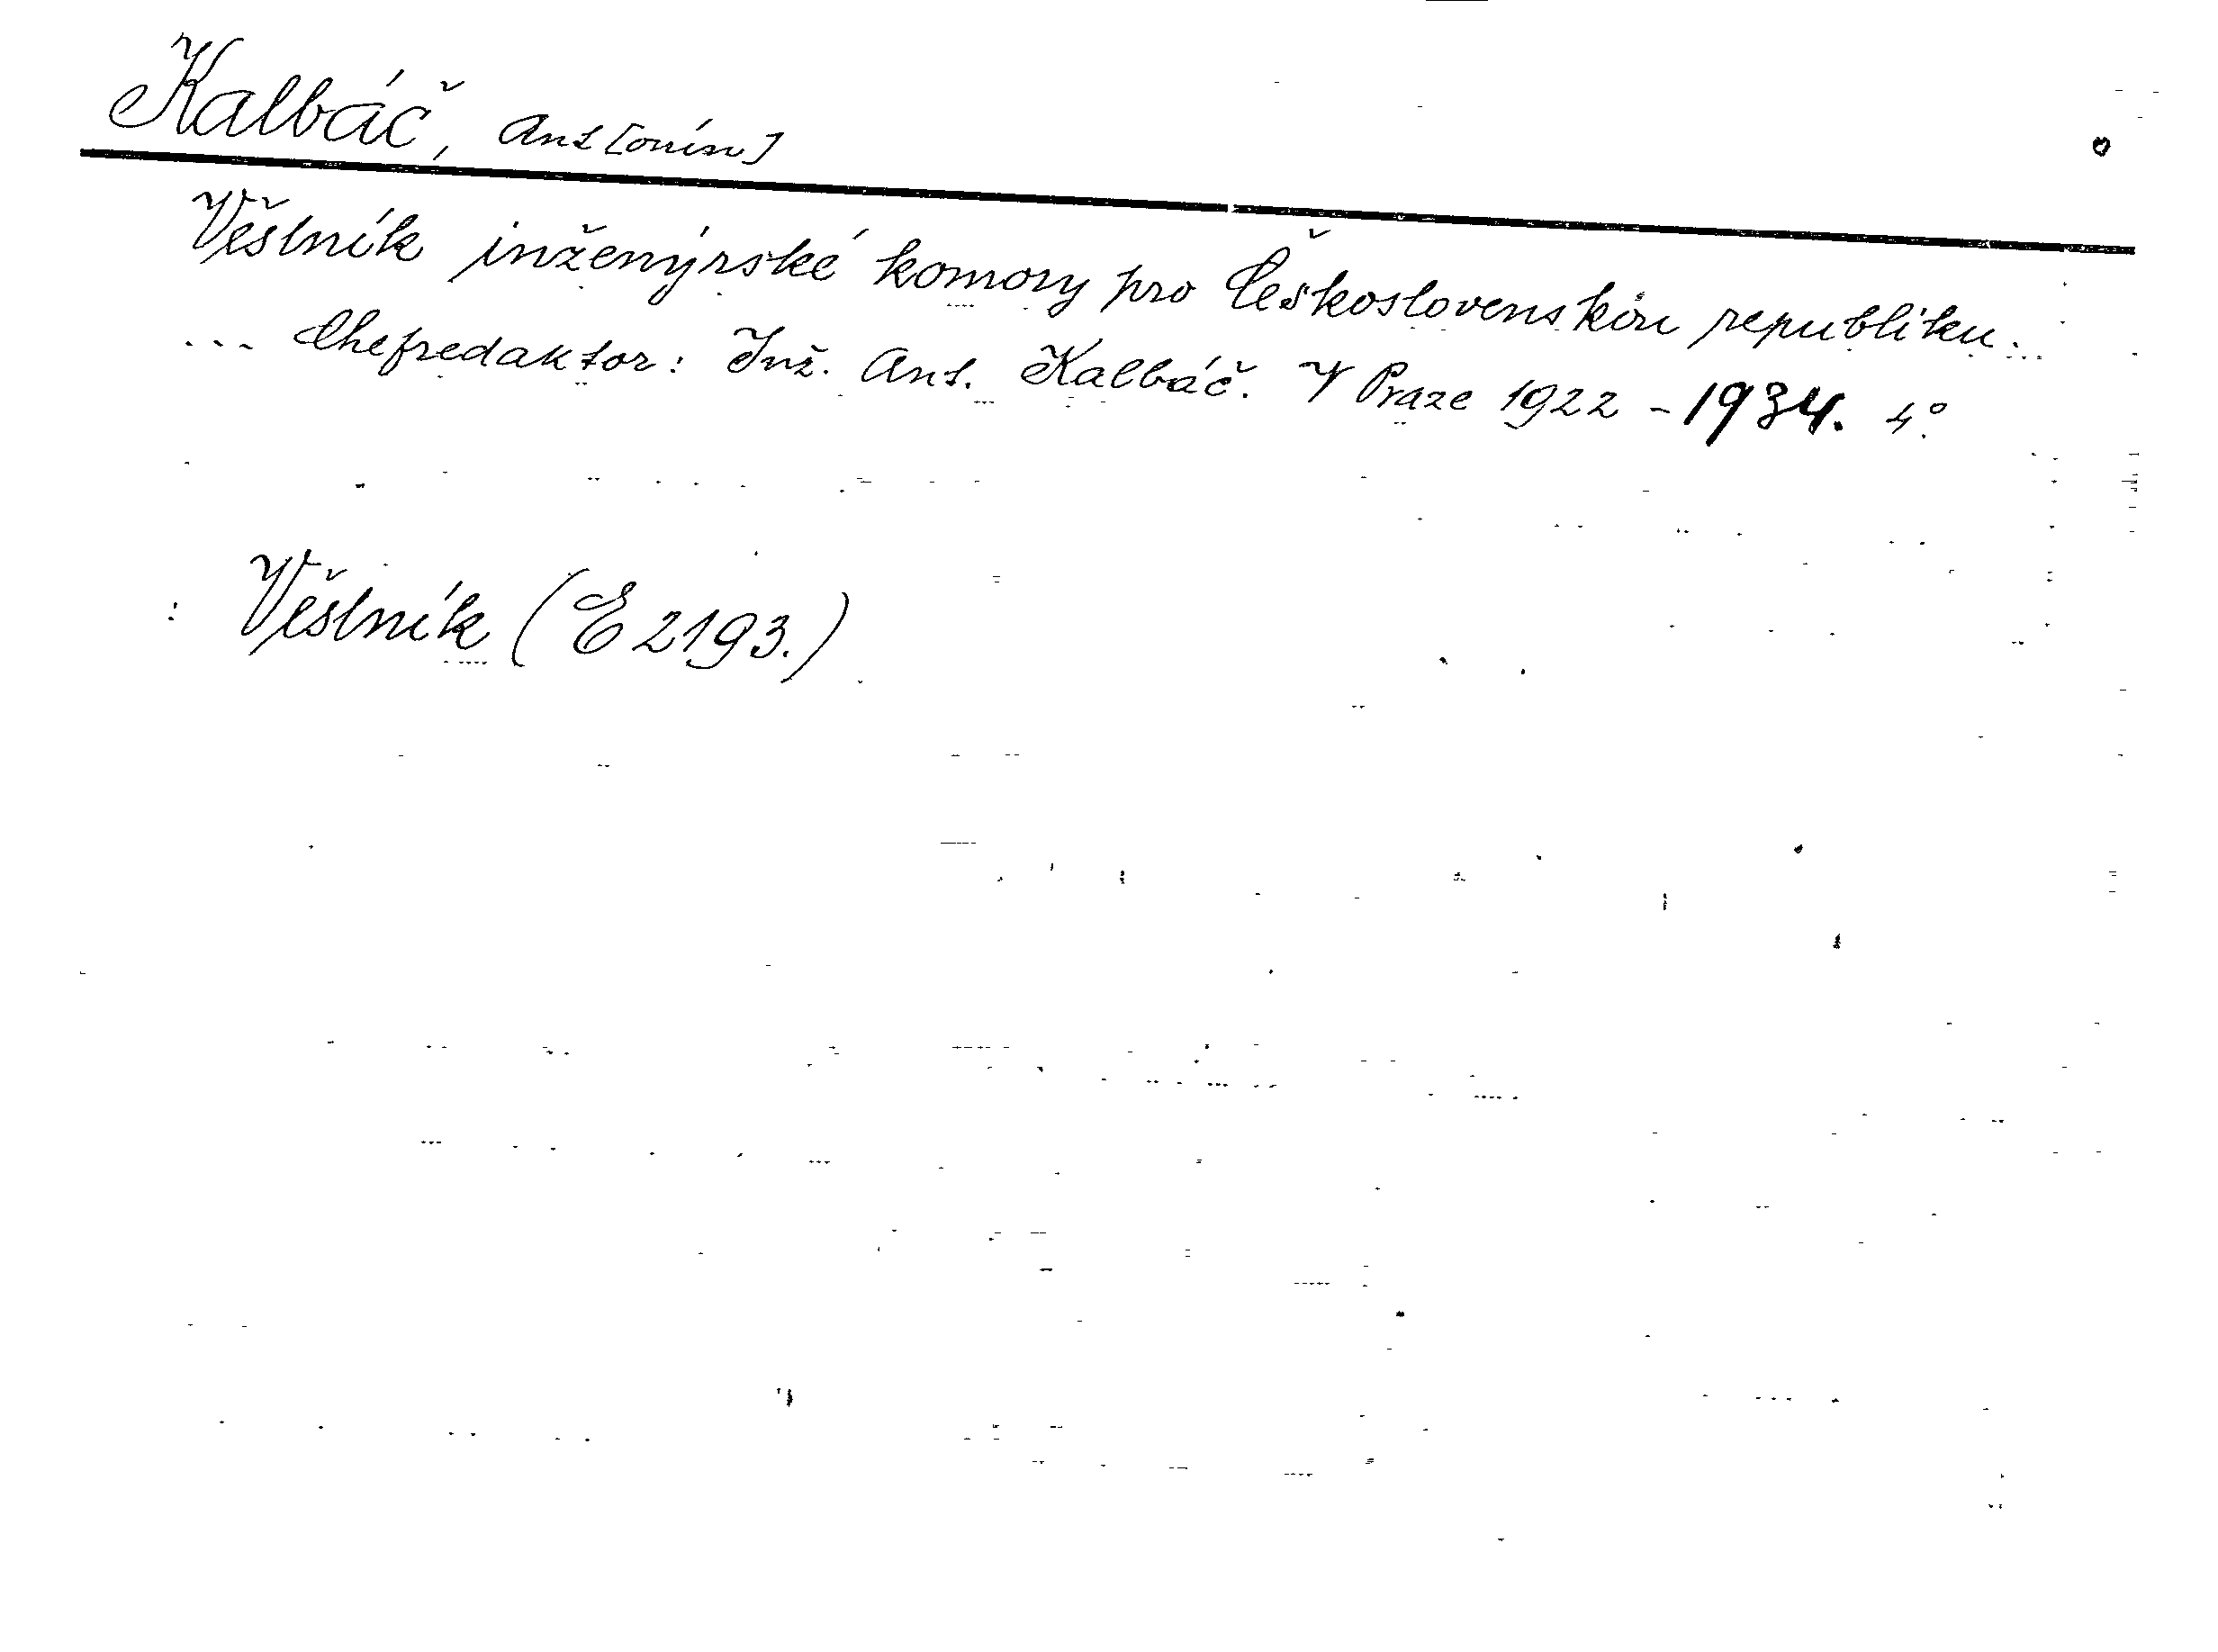 Kalbáč, Ant[onín]
Věštník inženýrské komory pro Československou republiku...
... Chefredaktor: Inž. Ant. Kalbáč. V Praze 1922 - 1934. 4°.
: Věštník (E 2193.)